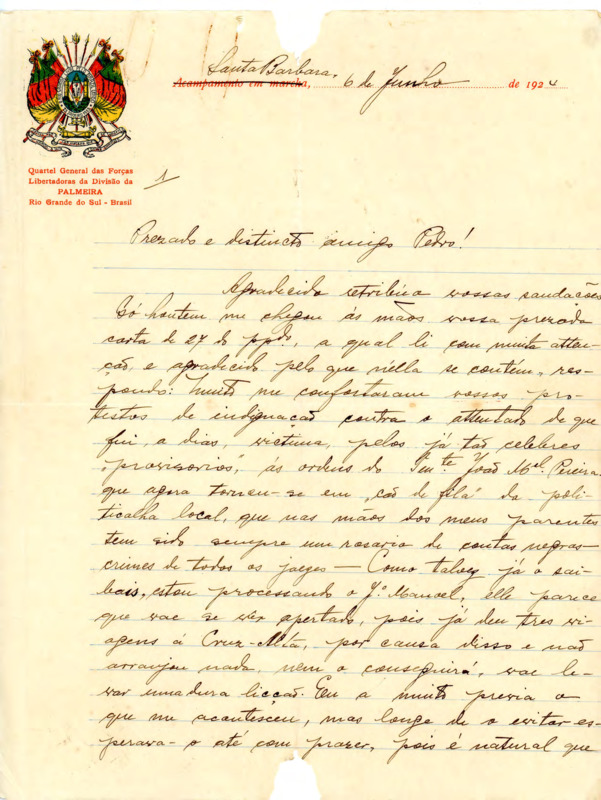 Santa Barbara,
Acampamento em marcha, 6 de Junho de 1924
Quartel General das Forças
Libertadoras da Divisão da
PALMEIRA
Rio Grande do Sul - Brasil
1
Prezado e distincto amigo Pedro!
Agradicido retribúo vossas saudações
Só hontem me chegou ás mãos vossa prezada
carta de 27 do ppdo, a qual li com muita atten-
ção, e agradicido pelo que n'ella se contém, res-
pondo: Muito me confortaram vossos pro-
testos de indignação contra o attentado de que
fui, a dias, victima, pelos já tão celebres
"provisorios", ás ordens do Tente João Mel Pereira,
que agora tornou-se em "cão de fila" da poli-
ticalha local, que nas mãos dos meus parentes
tem sido sempre um rosario de contas negras -
crimes de todos os jaezes — Como talvez já o sai-
bais, estou processando o Jo Manoel, elle parece
que vae se ver apertado, pois já deu tres vi-
agens á Cruz-Alta, por causa disso e não
arranjou nada, nem o conseguirá, vae le-
var uma dura licção. Eu a muito previa o
que me acontesceu, mas longe de o evitar es-
perava-o até com prazer, pois é natural que